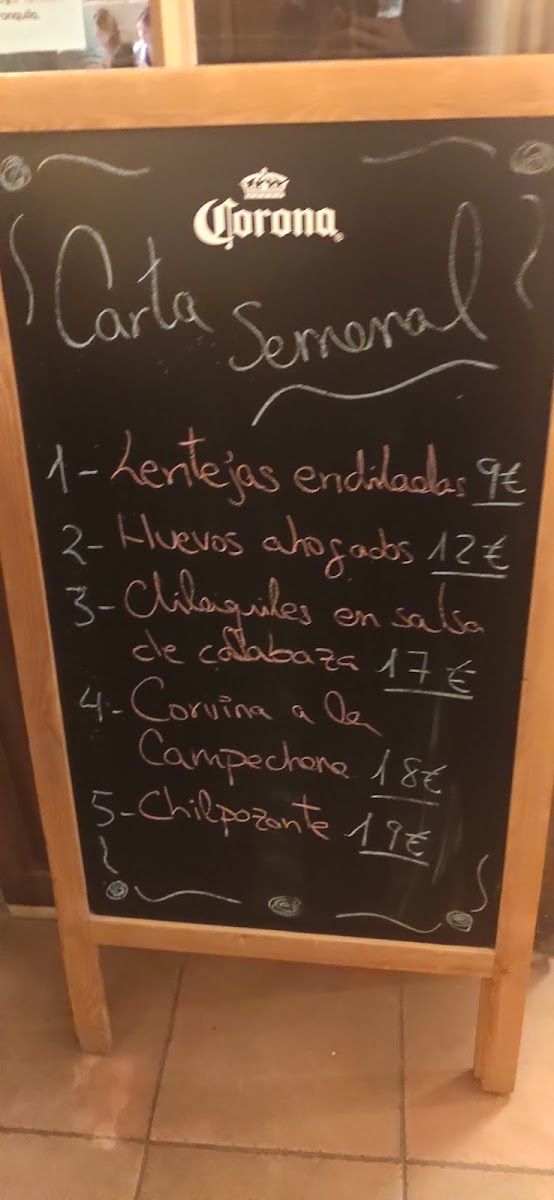 ranquila.
Corona
Carta Semanal
1- Lentejas enchiladas 9€
2- Huevos ahogados 12€
3- Chilaquiles en salsa
de calabaza 17€
4- Corvina a la
Campechana 18€
5- Chilpozonte 19€